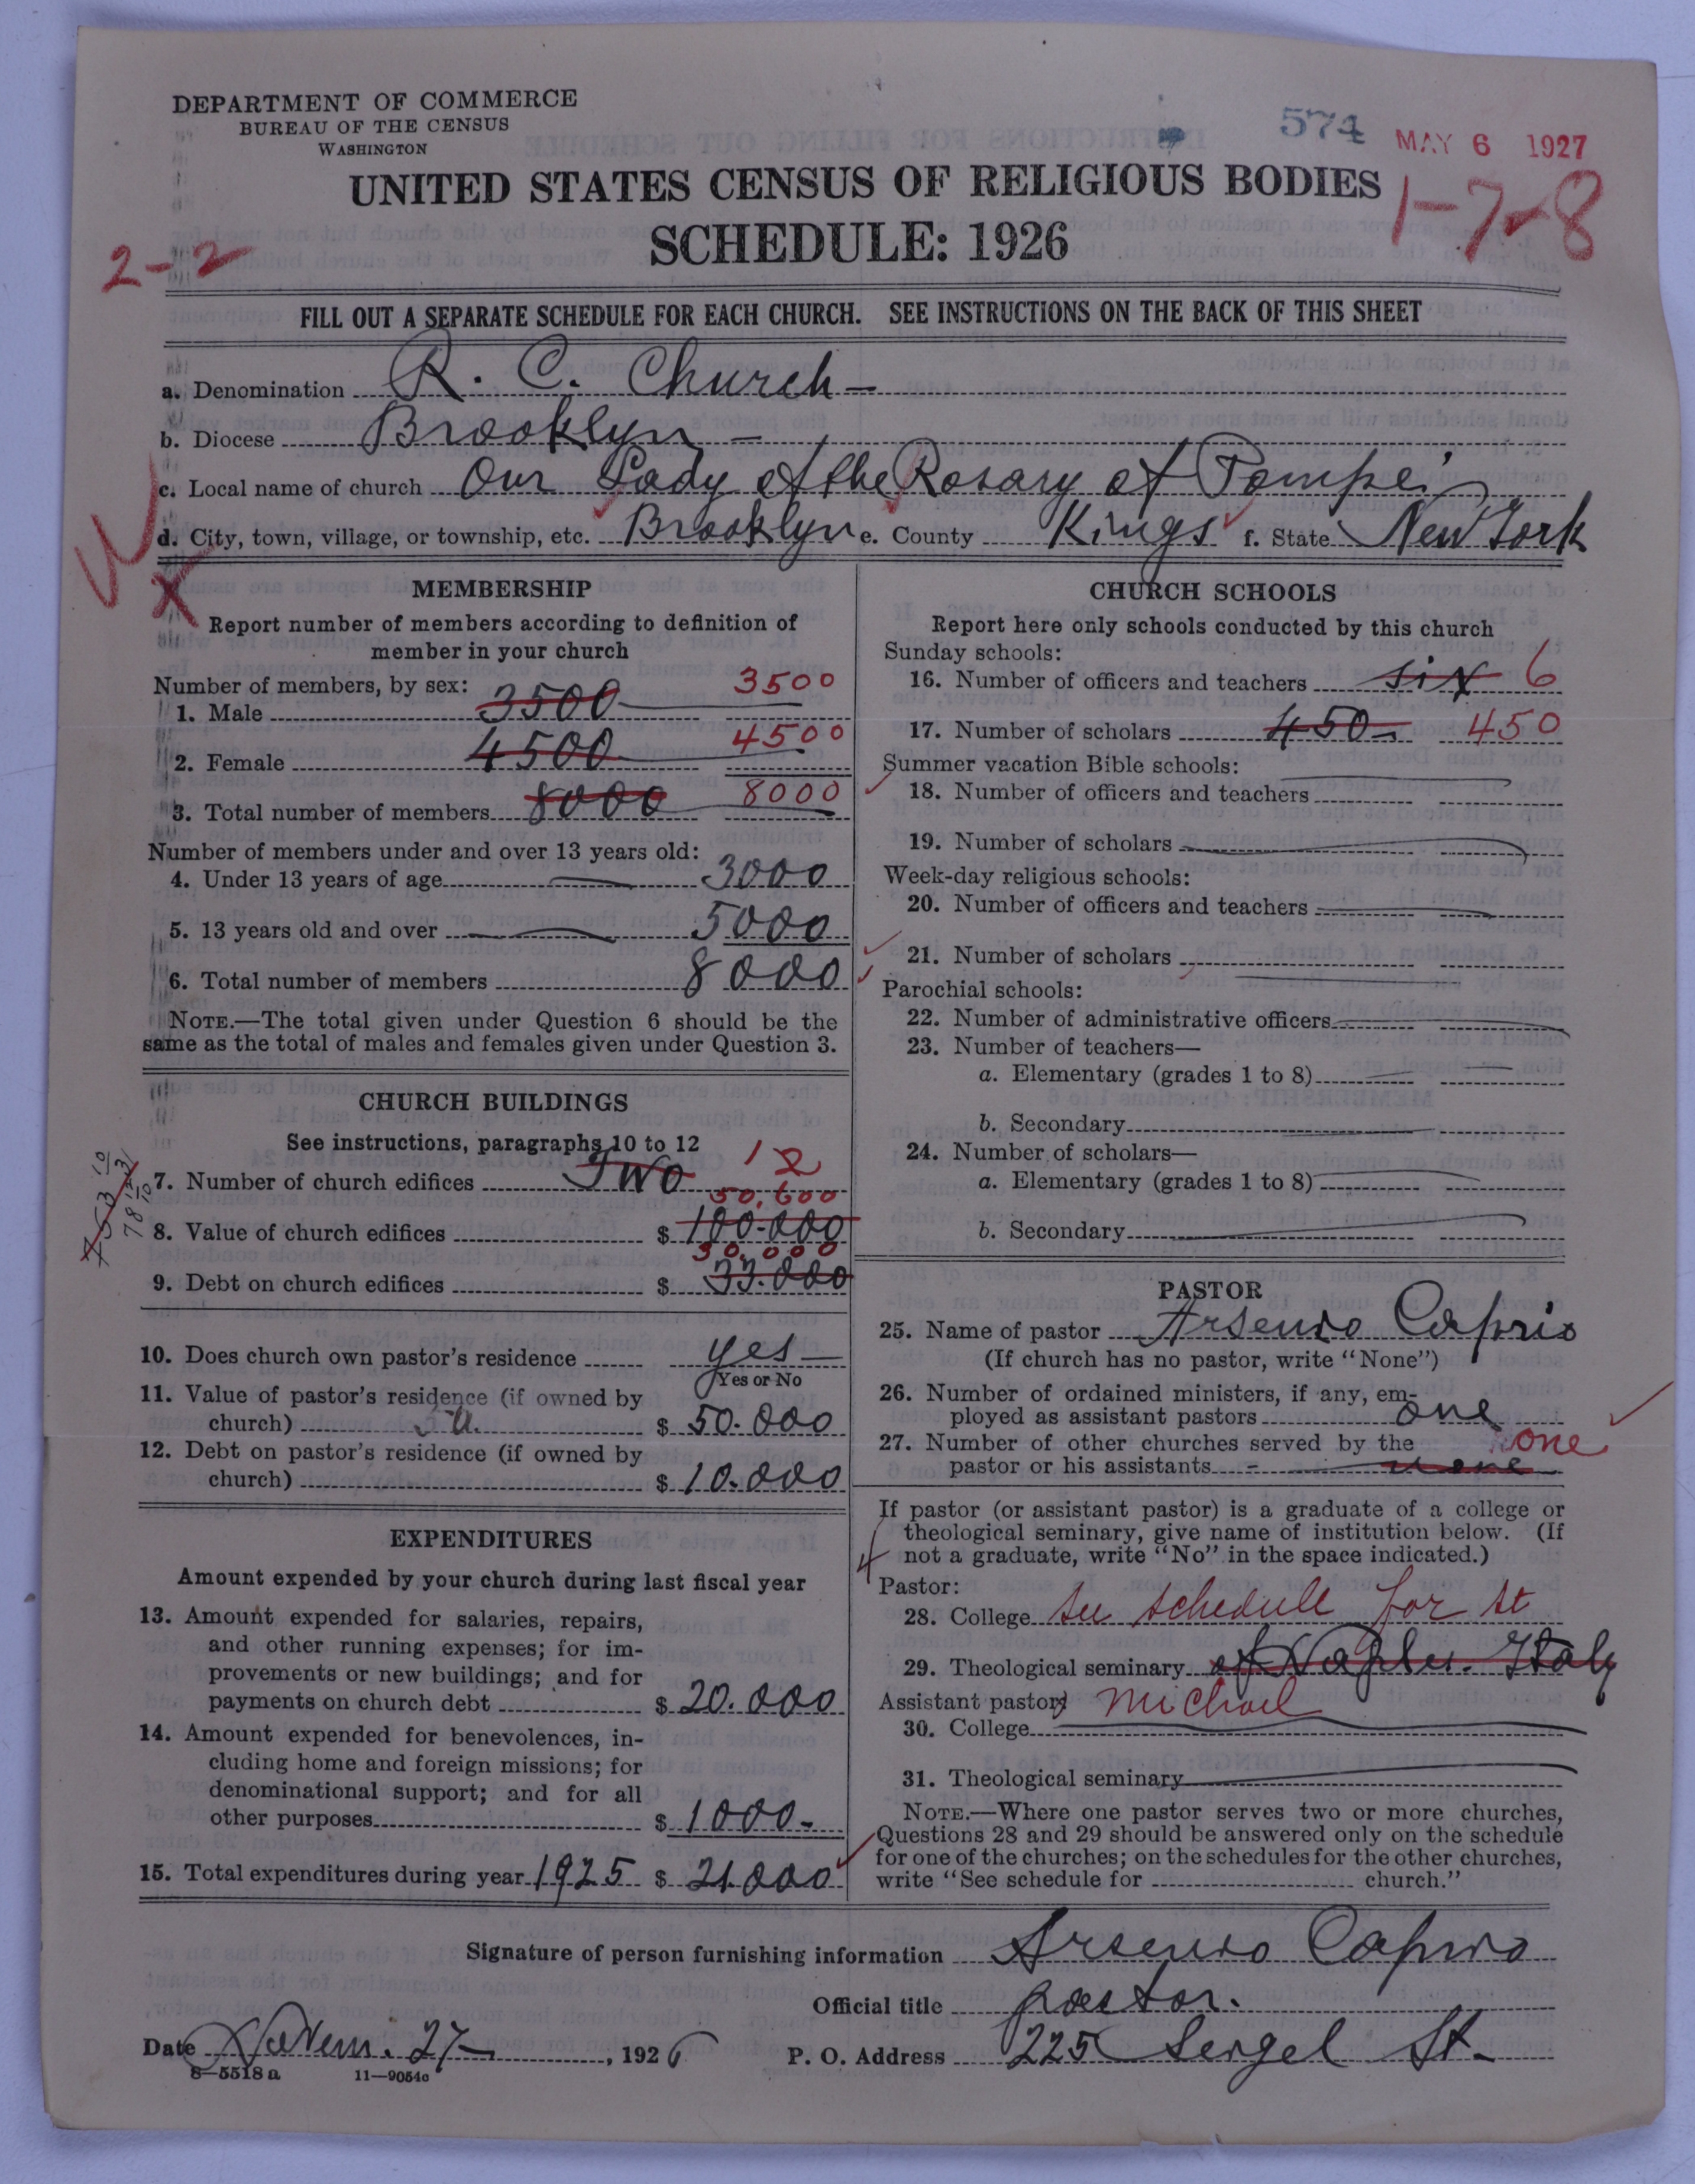 DEPARTMENT OF COMMERCE
BUREAU OF THE CENSUS
WASHINGTON
574 MAY 6 1927
UNITED STATES CENSUS OF RELIGIOUS BODIES
1-7-8
SCHEDULE: 1926
2-2
FILL OUT A SEPARATE SCHEDULE FOR EACH CHURCH. SEE INSTRUCTIONS ON THE BACK OF THIS SHEET
a. Denomination R. C. Church-
b. Diocese Brooklyn -
c. Local name of church Our Lady of the Rosary of Pompei
d. City, town, village, or township, etc. Brooklyn e. County Kings f. State New York
MEMBERSHIP
Report number of members according to definition of
member in your church
Number of members, by sex:
1. Male 3500 3500
2. Female 4500 4500
3. Total number of members 8000 8000
Number of members under and over 13 years old:
4. Under 13 years of age 3000
5. 13 years old and over 5000
6. Total number of members 8000
NOTE.—The total given under Question 6 should be the
same as the total of males and females given under Question 3.
CHURCH BUILDINGS
See instructions, paragraphs 10 to 12
7. Number of church edifices Two 1 2
50,600
8. Value of church edifices $ 100.000
30,000
9. Debt on church edifices $ 33.000
10. Does church own pastor's residence yes
Yes or No
11. Value of pastor's residence (if owned by
church) $ 50.000
12. Debt on pastor's residence (if owned by
church) $ 10.000
EXPENDITURES
Amount expended by your church during last fiscal year
13. Amount expended for salaries, repairs,
and other running expenses; for im-
provements or new buildings; and for
payments on church debt $ 20.000
14. Amount expended for benevolences, in-
cluding home and foreign missions; for
denominational support; and for all
other purposes $ 1000-
15. Total expenditures during year 1925 $ 21.000
CHURCH SCHOOLS
Report here only schools conducted by this church
Sunday schools:
16. Number of officers and teachers six 6
17. Number of scholars 450- 450
Summer vacation Bible schools:
18. Number of officers and teachers
19. Number of scholars
Week-day religious schools:
20. Number of officers and teachers
21. Number of scholars
Parochial schools:
22. Number of administrative officers
23. Number of teachers—
a. Elementary (grades 1 to 8)
b. Secondary
24. Number of scholars—
a. Elementary (grades 1 to 8)
b. Secondary
PASTOR
25. Name of pastor Arsenio Caprio
(If church has no pastor, write "None")
26. Number of ordained ministers, if any, em-
ployed as assistant pastors one
27. Number of other churches served by the one
pastor or his assistants none
If pastor (or assistant pastor) is a graduate of a college or
theological seminary, give name of institution below. (If
not a graduate, write "No" in the space indicated.)
Pastor:
28. College see schedule for St
29. Theological seminary of Naples. Italy
Assistant pastor: Michael
30. College
31. Theological seminary
NOTE.—Where one pastor serves two or more churches,
Questions 28 and 29 should be answered only on the schedule
for one of the churches; on the schedules for the other churches,
write "See schedule for church."
Signature of person furnishing information Arsenio Caprio
Official title pastor.
Date Novem. 27-, 1926 P. O. Address 225 Seigel St.
8—5518a 11—9054a